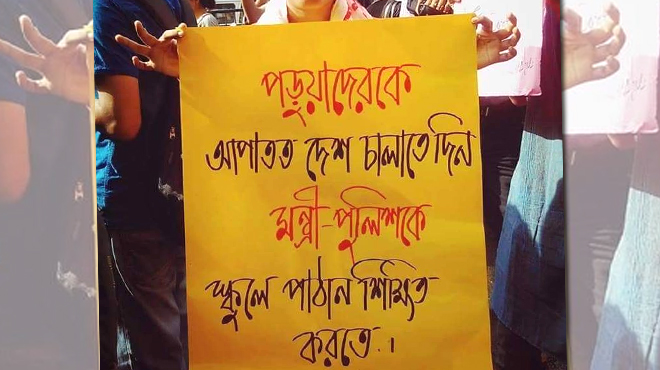 পড়ুয়াদেরকে
আপাতত দেশ চালাতে দিন
মন্ত্রী-পুলিশকে
স্কুলে পাঠান শিক্ষিত
করতে।